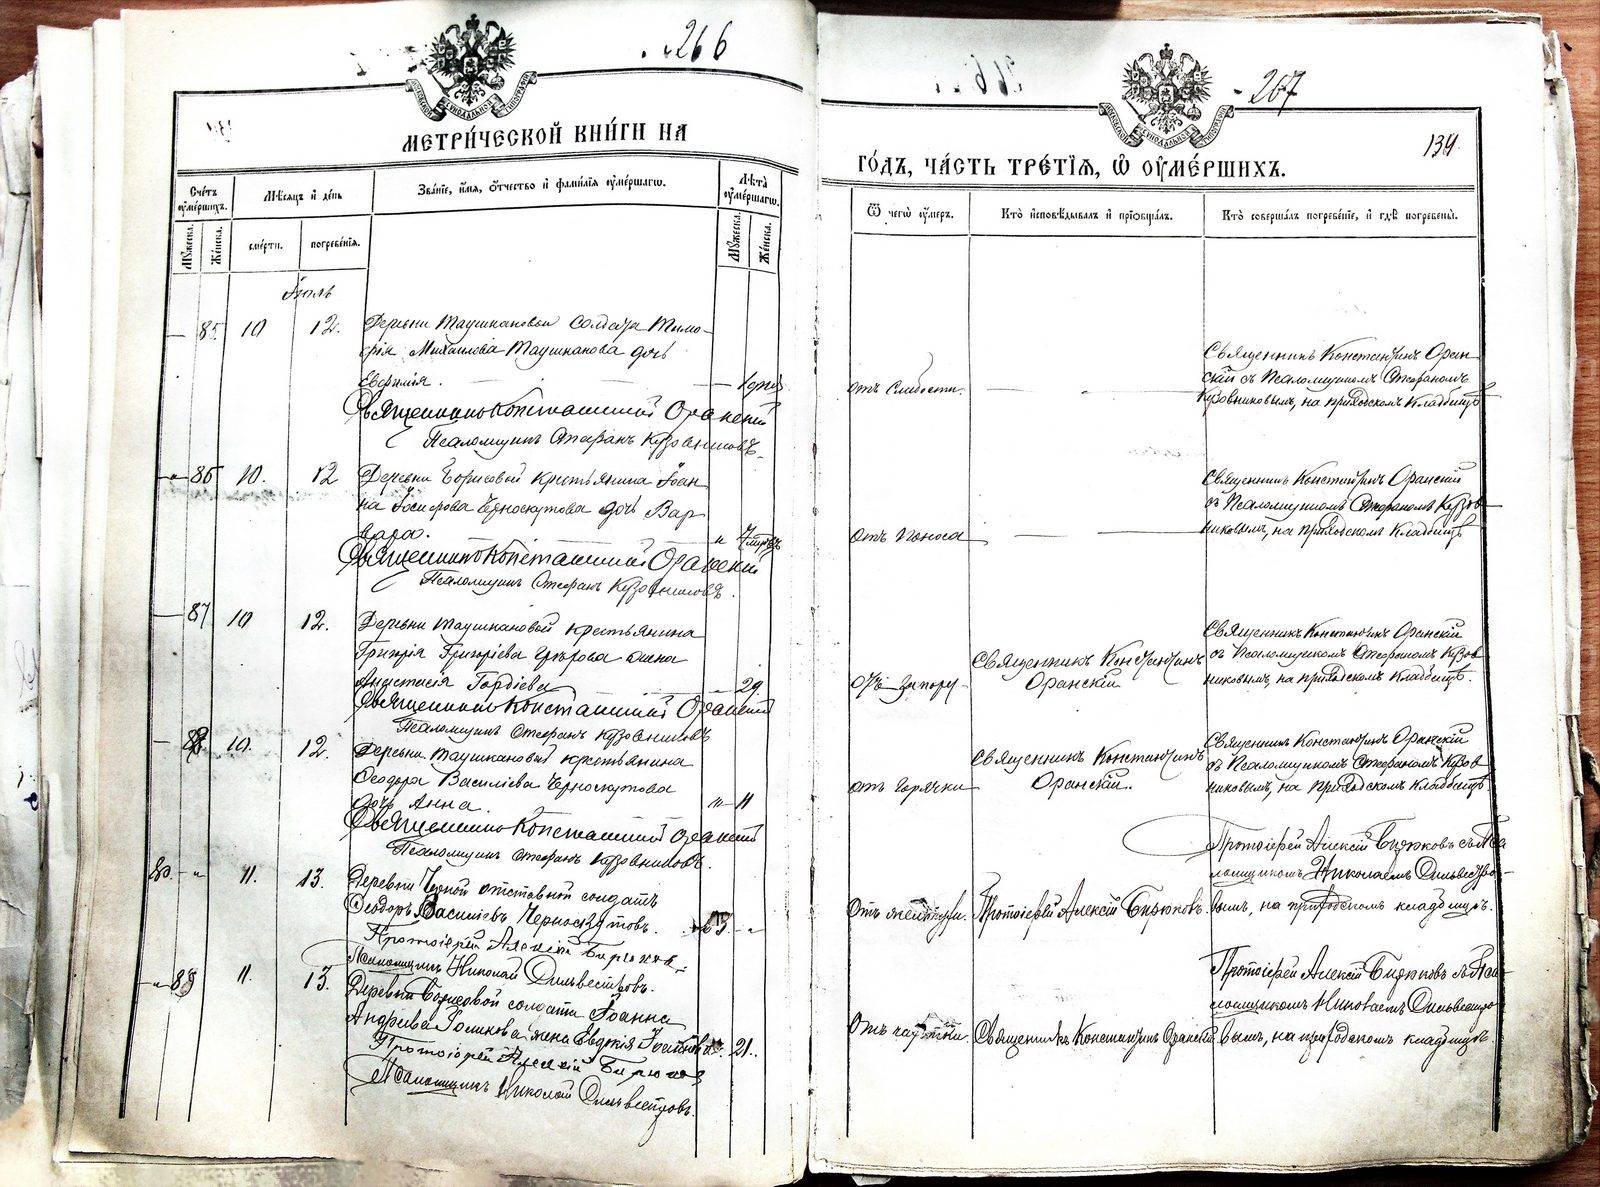 266
МЕТРИ́ЧЕСКОЙ КНИ́ГИ НА
Сче́тъ ѹме́ршихъ.
Мѣ́сяцъ и де́нь
Зва́нїе, и́мя, ѻ́тчество и фами́лїя ѹме́ршагѡ.
Лѣ́та ѹме́ршагѡ.
Мꙋ́жеска.
Же́нска.
сме́рти.
погребе́нїя.
Мꙋ́жеска.
Же́нска.
Іюль
85 10 12. Деревни Таушкановой солдата Тимо-
фея Михаилова Таушканова дочь
Евфимія. 1 дня
Священникъ Константинъ Оранскій
Псаломщикъ Стефанъ Кузовниковъ.
86 10. 12 Деревни Борисовой крестьянина Іоан-
на Іосифова Черноскутова дочь Вар
вара.
Священникъ Константинъ Оранскій
Псаломщикъ Стефанъ Кузовниковъ.
87 10 12. Деревни Таушкановой крестьянина
Григорія Григоріева жена
Анастасія Гордѣева 29
Священникъ Константинъ Оранскій
Псаломщикъ Стефанъ Кузовниковъ
88 10. 12. Деревни Таушкановой крестьянина
Ѳеодора Василіева Черноскутова
дочь Анна. 11
Священникъ Константинъ Оранскій
Псаломщикъ Стефанъ Кузовниковъ.
11. 13. Деревни Черной отставной солдатъ
Ѳеодоръ Василіевъ Черноскутовъ.
Протоіерей Алексій Бирюковъ
Псаломщикъ Николай Сильвестровъ.
11. 13. Деревни Борисовой солдата Іоанна
Андреева Голикова жена Евдокія 21.
Протоіерей Алексій Бирюковъ
Псаломщикъ Николай Сильвестровъ.
267
134
ГО́ДЪ, ЧА́СТЬ ТРЕ́ТЇЯ, Ѡ ОУМЕ́РШИХЪ.
Ѿ чегѡ̀ ѹ́меръ.
Кто̀ и҆сповѣ́дывалъ и҆ прїѡбща́лъ.
Кто̀ соверша́лъ погребе́нїе, и҆ гдѣ̀ погребены̀.
отъ слабости.
Священникъ Константинъ Оран
скій съ Псаломщикомъ Стефаномъ
Кузовниковымъ, на приходскомъ кладбищѣ
отъ поноса
Священникъ Константинъ Оранскій
съ Псаломщикомъ Стефаномъ Кузов-
никовымъ, на приходскомъ кладбищѣ
отъ запору
Священникъ Константинъ
Оранскій
Священникъ Константинъ Оранскій
съ Псаломщикомъ Стефаномъ Кузов
никовымъ, на приходскомъ кладбищѣ.
отъ горячки
Священникъ Константинъ
Оранскій.
Священникъ Константинъ Оранскій
съ Псаломщикомъ Стефаномъ Кузов
никовымъ, на приходскомъ кладбищѣ.
Протоіерей Алексій Бирюковъ съ Пса
ломщикомъ Николаемъ Сильвестро-
вымъ, на приходскомъ кладбищѣ.
Протоіерей Алексій Бирюковъ
Протоіерей Алексій Бирюковъ съ Пса-
ломщикомъ Николаемъ Сильвестро
вымъ, на приходскомъ кладбищѣ
Отъ чахотки
Священникъ Константинъ Оранскій